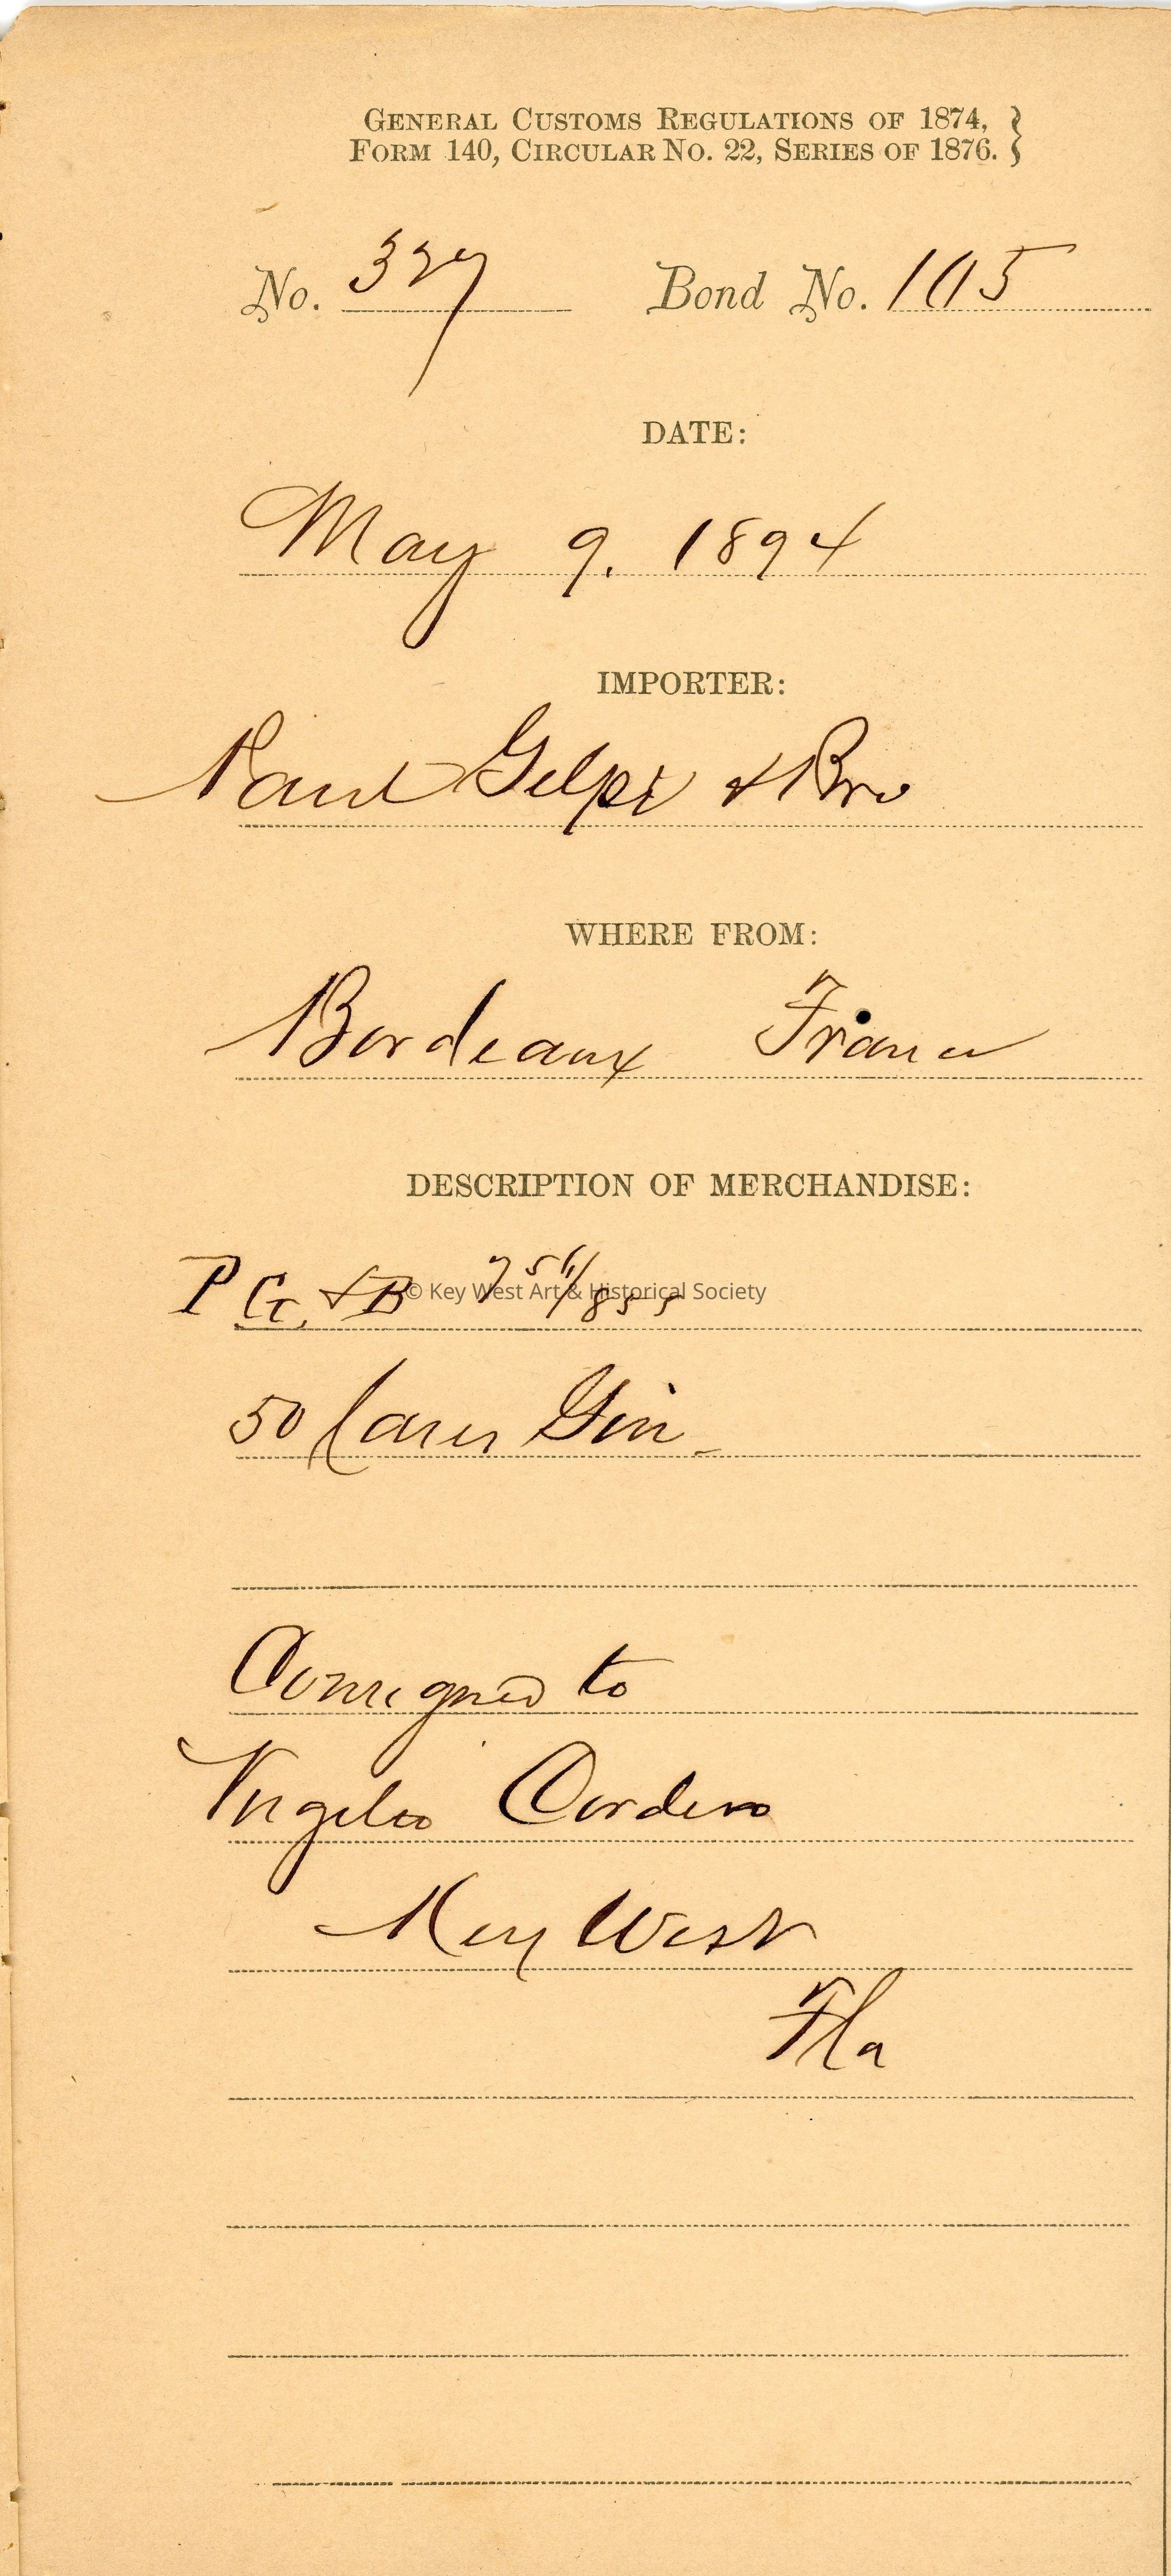 GENERAL CUSTOMS REGULATIONS OF 1874,
FORM 140, CIRCULAR NO. 22, SERIES OF 1876.
No. 327 Bond No. 105
DATE:
May 9. 1894
IMPORTER:
Paul Gelpi & Bro
WHERE FROM:
Bordeaux France
DESCRIPTION OF MERCHANDISE:
P G & B
© Key West Art & Historical Society
50 Cases Gin
Consigned to
Angelo Cordero
Key West
Fla